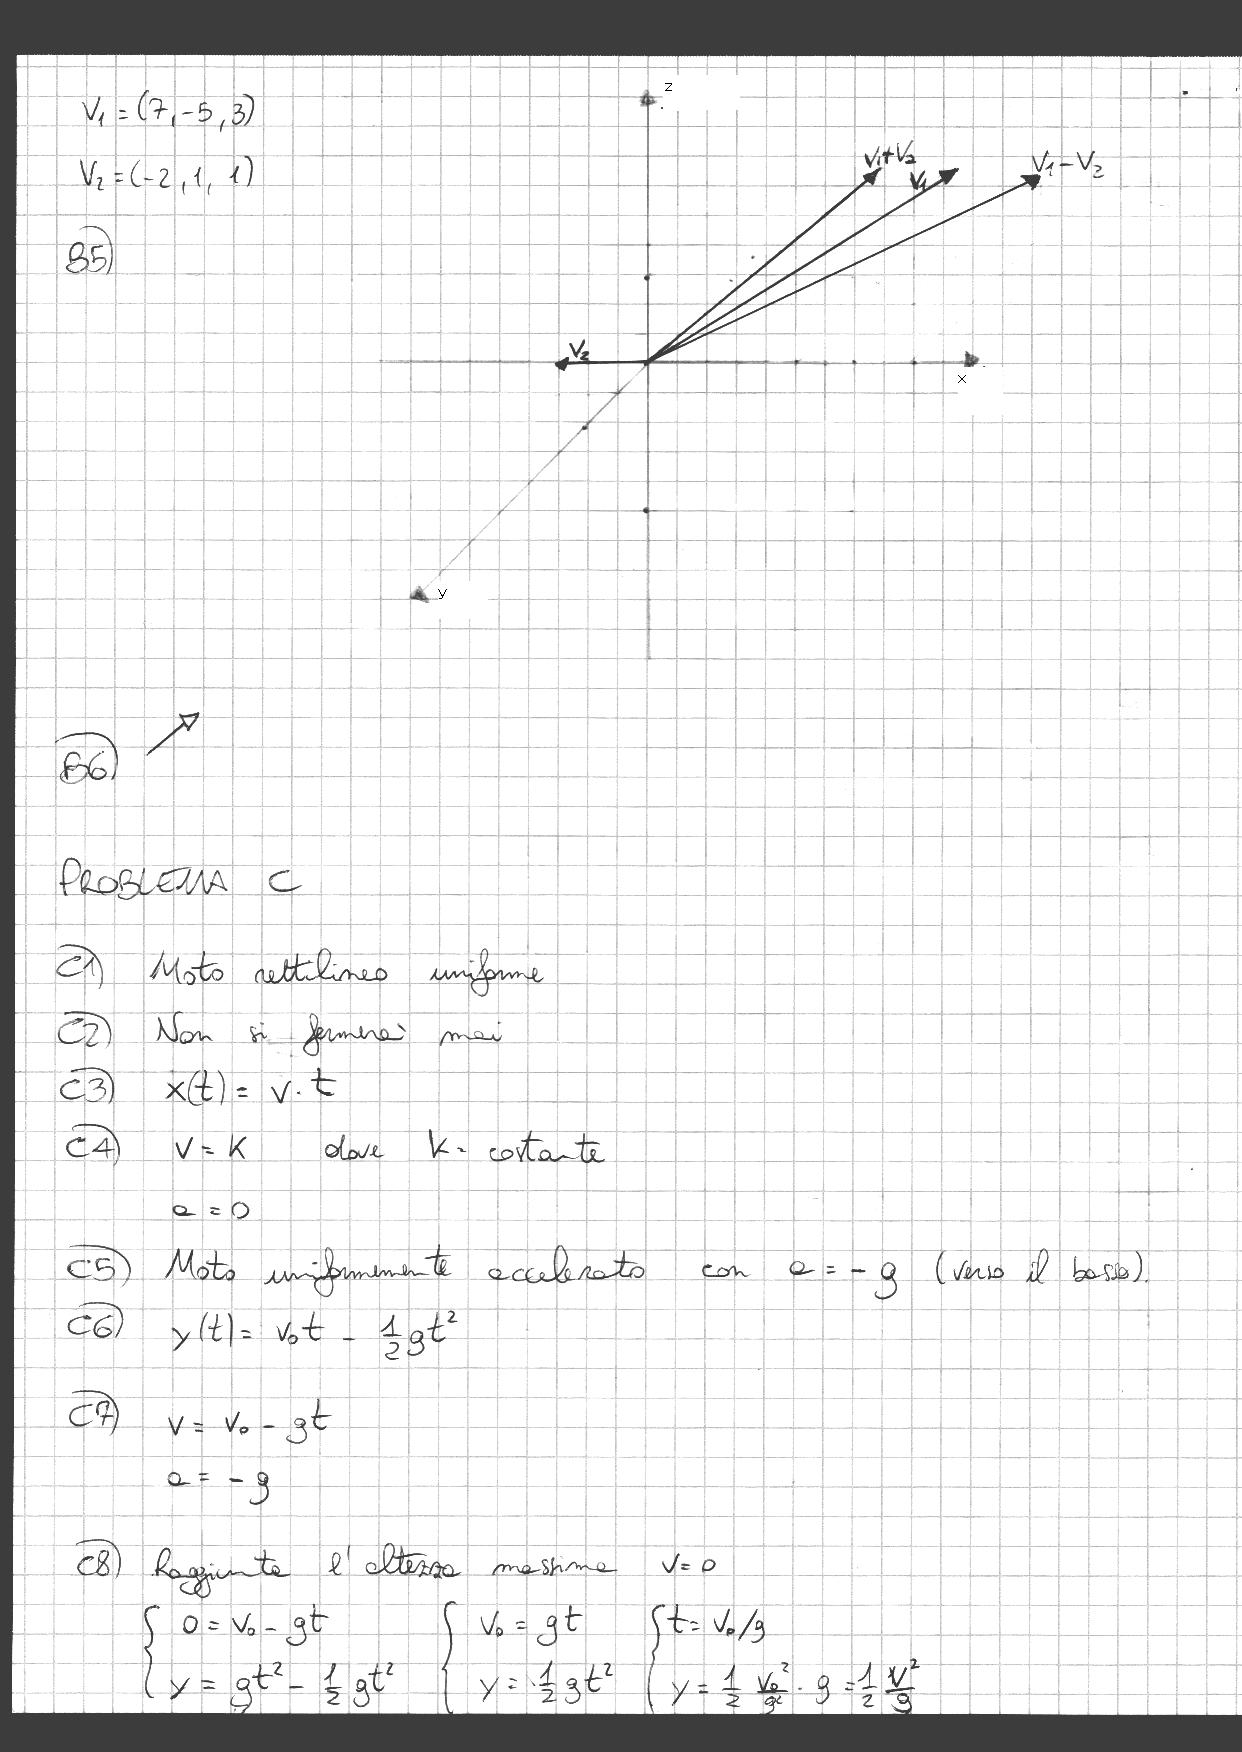 V₁ = (7, -5, 3)
V₂ = (-2, 1, 1)
B5)
z
V₁+V₂
V₁
V₁-V₂
V₂
x
y
B6)
PROBLEMA C
C1) Moto rettilineo uniforme
C2) Non si fermerà mai
C3) x(t) = v · t
C4) v = K dove k = costante
a = 0
C5) Moto uniformemente accelerato con a = - g (verso il basso).
C6) y(t) = v₀t - 1/2 gt²
C7) v = v₀ - gt
a = - g
C8) Raggiunta l'altezza massima v = 0
{ 0 = v₀ - gt { v₀ = gt { t = v₀/g
{ y = gt² - 1/2 gt² { y = 1/2 gt² { y = 1/2 v₀²/g² · g = 1/2 v²/g